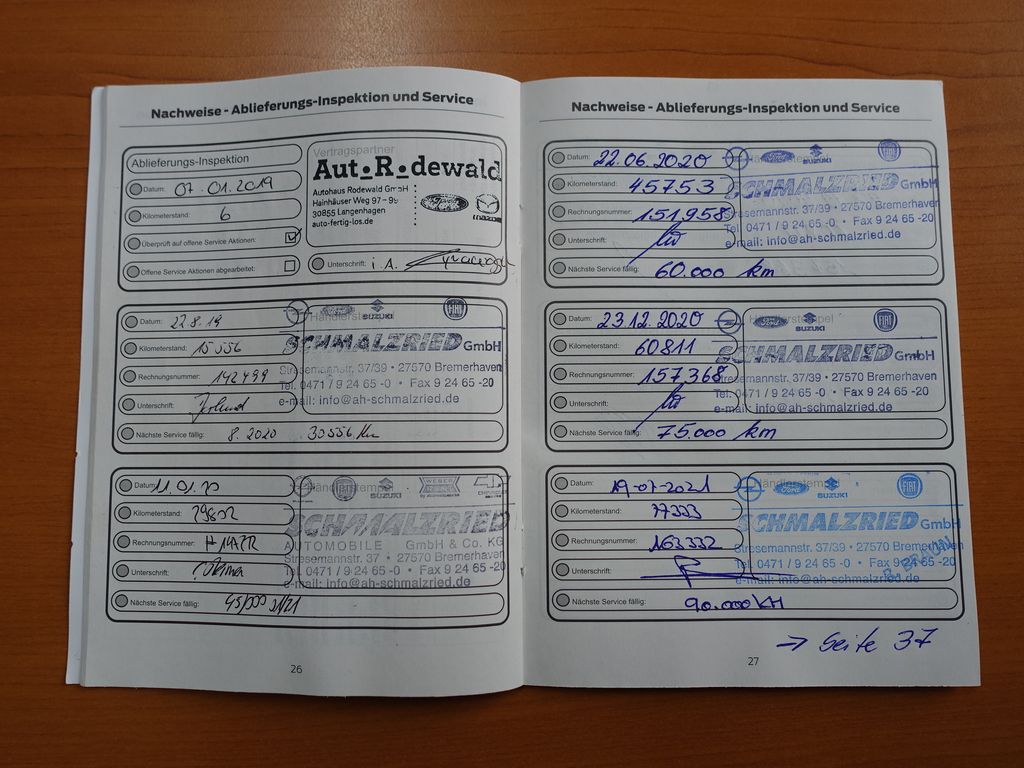 Nachweise - Ablieferungs-Inspektion und Service
Ablieferungs-Inspektion
Datum: 07.01.2019
Kilometerstand: 6
Überprüft auf offene Service Aktionen:
Offene Service Aktionen abgearbeitet:
Vertragspartner
Aut.R.dewald
Autohaus Rodewald GmbH
Hainhäuser Weg 97 - 99
30855 Langenhagen
auto-fertig-los.de
Ford
mazda
Unterschrift: i.A.
Datum: 22.8.19
Kilometerstand: 15556
Rechnungsnummer: 142499
Unterschrift:
Nächste Service fällig: 8.2020 30556 Km
Händlerstempel
Ford SUZUKI FIAT
SCHMALZRIED GmbH
Stresemannstr. 37/39 • 27570 Bremerhaven
Tel. 0471 / 9 24 65 -0 • Fax 9 24 65 -20
e-mail: info@ah-schmalzried.de
Datum: 11.01.20
Kilometerstand: 29802
Rechnungsnummer:
Unterschrift:
Nächste Service fällig:
Händlerstempel
FIAT SUZUKI WEBER CHEVROLET
SCHMALZRIED
AUTOMOBILE GmbH & Co. KG
Stresemannstr. 37 • 27570 Bremerhaven
Tel. 0471 / 9 24 65 -0 • Fax 9 24 65 -20
e-mail: info@ah-schmalzried.de
26
Nachweise - Ablieferungs-Inspektion und Service
Datum: 22.06.2020
Kilometerstand: 45753
Rechnungsnummer: 151958
Unterschrift:
Nächste Service fällig: 60.000 km
Ford SUZUKI FIAT
SCHMALZRIED GmbH
Stresemannstr. 37/39 • 27570 Bremerhaven
Tel. 0471 / 9 24 65 -0 • Fax 9 24 65 -20
e-mail: info@ah-schmalzried.de
Datum: 23.12.2020
Kilometerstand: 60811
Rechnungsnummer: 157368
Unterschrift:
Nächste Service fällig: 75.000 km
Händlerstempel
Ford SUZUKI FIAT
SCHMALZRIED GmbH
Stresemannstr. 37/39 • 27570 Bremerhaven
Tel. 0471 / 9 24 65 -0 • Fax 9 24 65 -20
e-mail: info@ah-schmalzried.de
Datum: 19-07-2021
Kilometerstand: 77333
Rechnungsnummer: 163332
Unterschrift:
Nächste Service fällig: 90.000 KM
Händlerstempel
Ford SUZUKI FIAT
SCHMALZRIED GmbH
Stresemannstr. 37/39 • 27570 Bremerhaven
Tel. 0471 / 9 24 65 -0 • Fax 9 24 65 -20
e-mail: info@ah-schmalzried.de
→ Seite 37
27